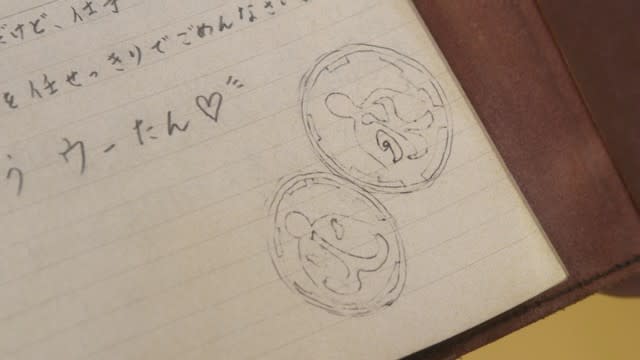 だけど、仕事
を任せっきりでごめんなさい
う ウーたん♡